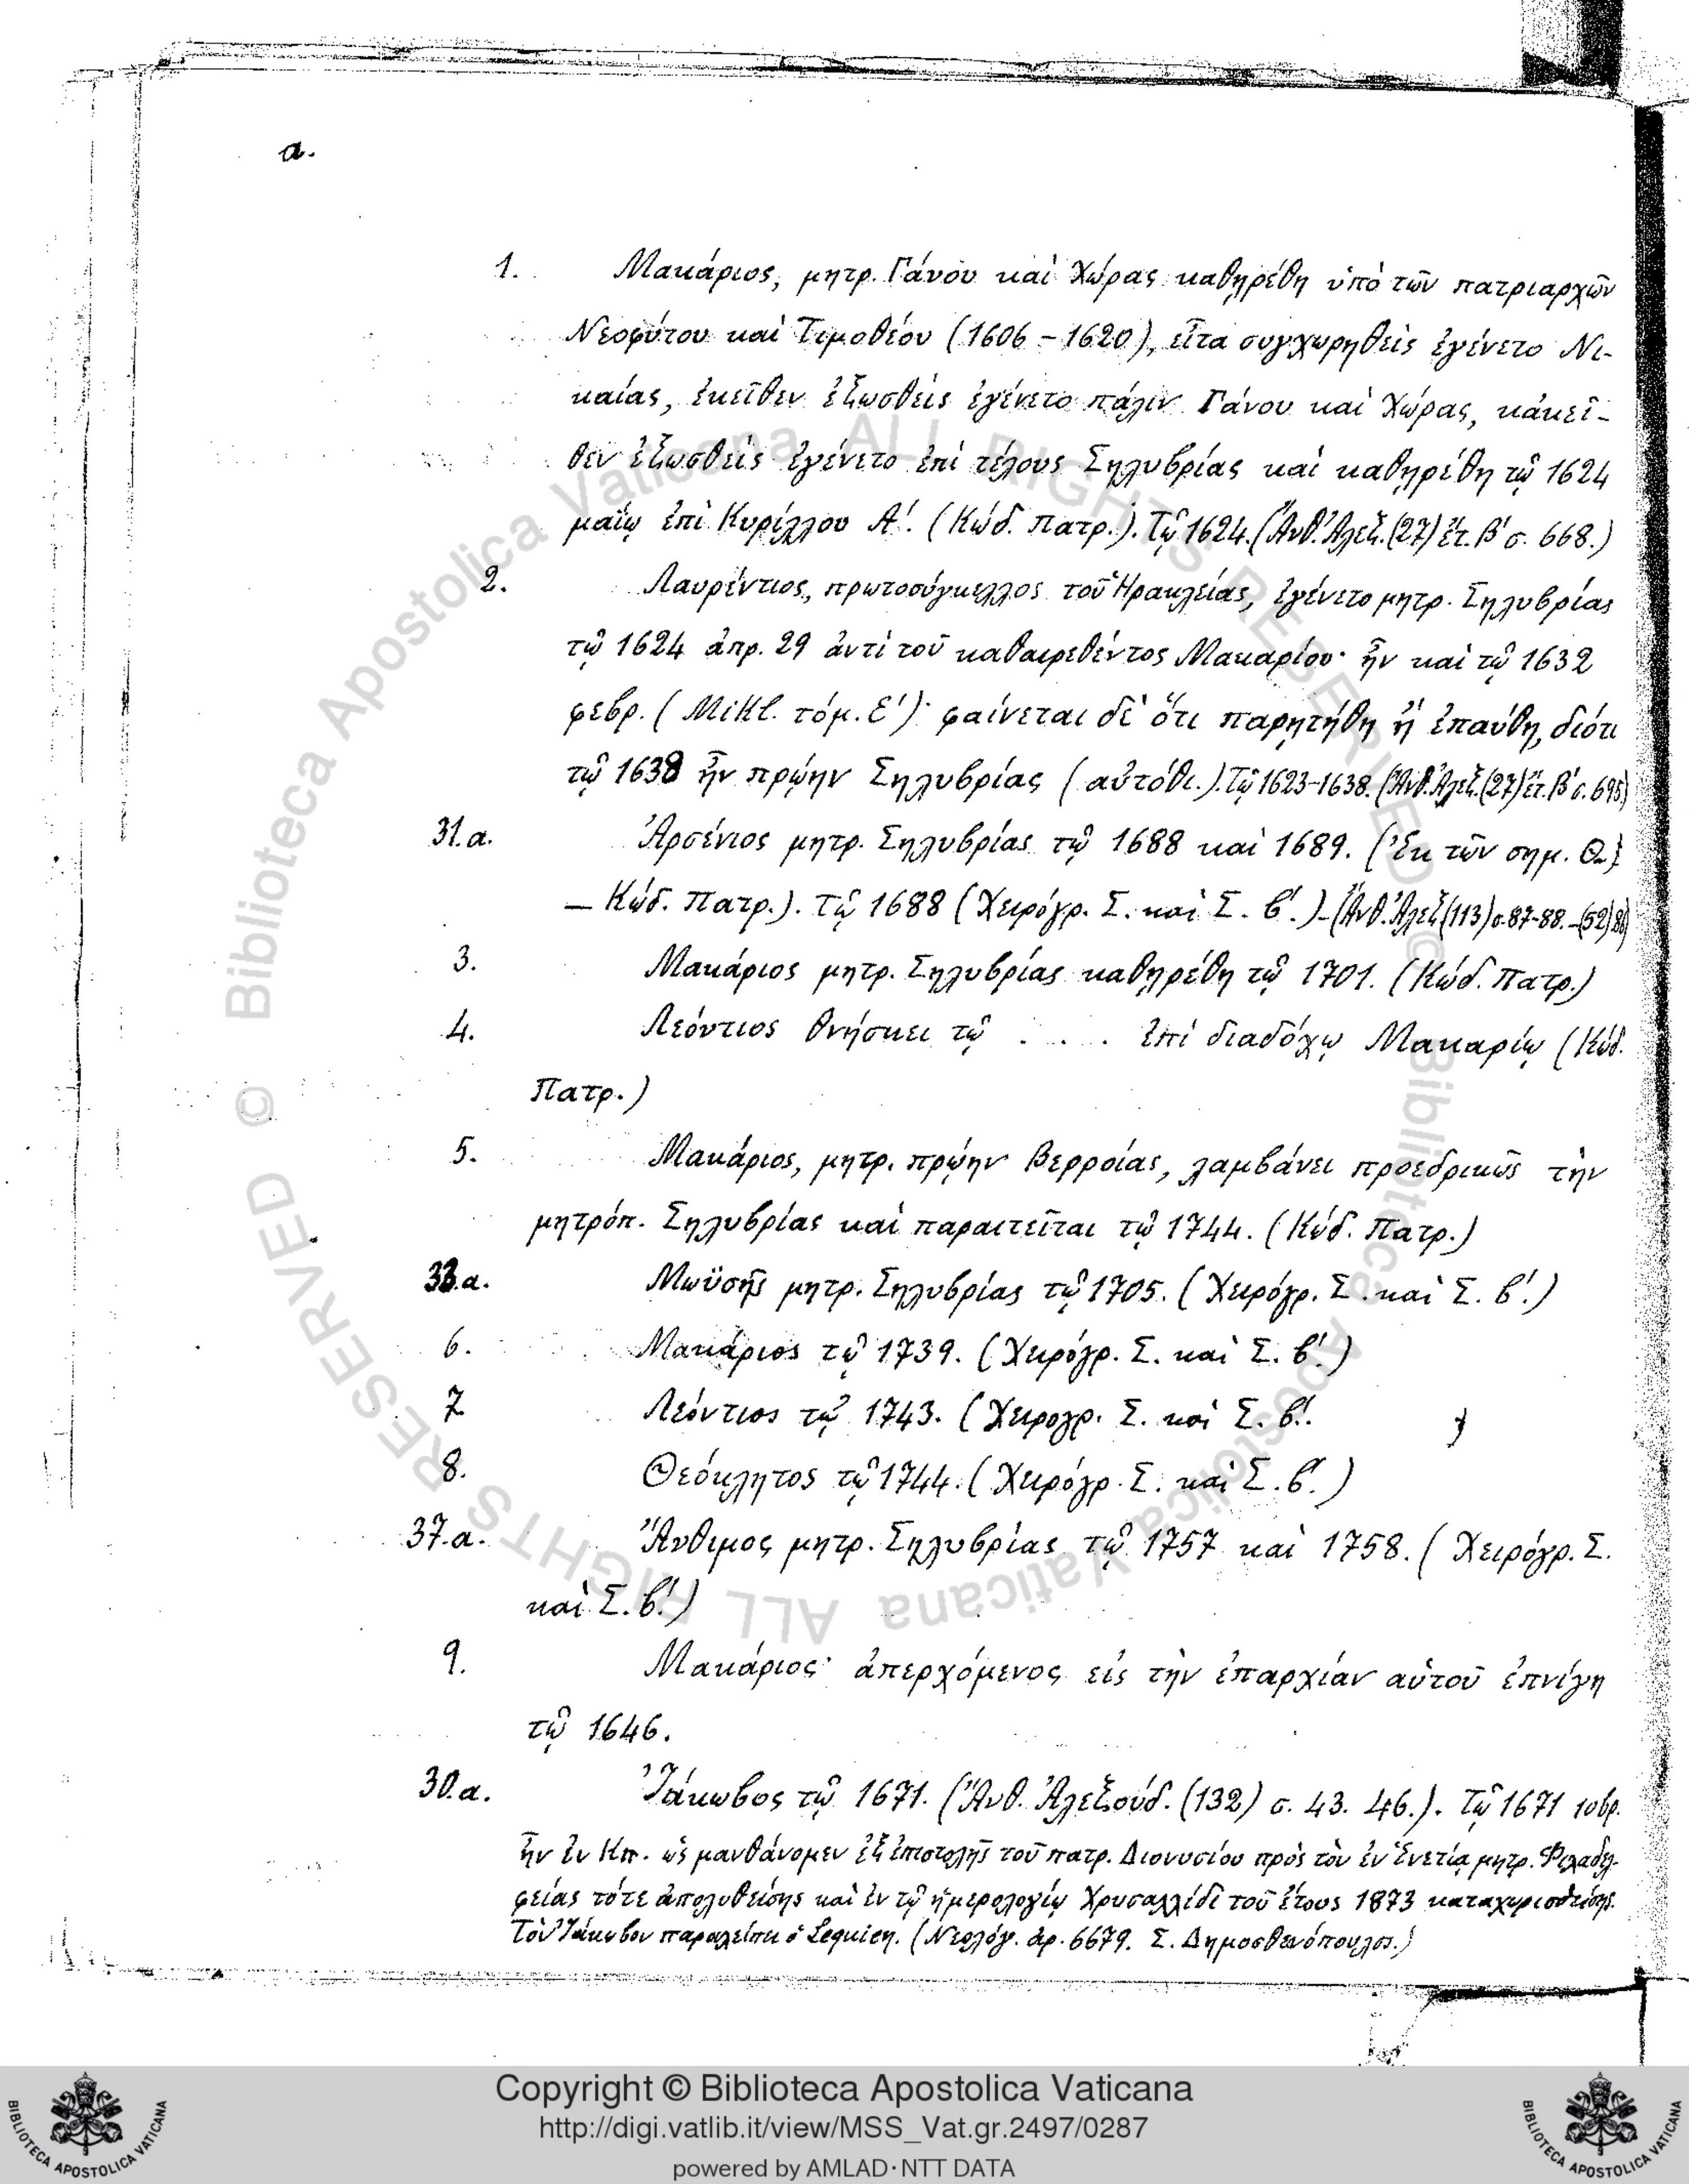 a.
1. Μακάριος, μητρ. Γάνου καὶ Χώρας καθῃρέθη ὑπὸ τῶν πατριαρχῶν
Νεοφύτου καὶ Τιμοθέου (1606 – 1620), εἶτα συγχωρηθεὶς ἐγένετο Νι-
καίας, ἐκεῖθεν ἐξωσθεὶς ἐγένετο πάλιν Γάνου καὶ Χώρας, κἀκεῖ-
θεν ἐξωσθεὶς ἐγένετο ἐπὶ τέλους Σηλυβρίας καὶ καθῃρέθη τῷ 1624
μαΐῳ ἐπὶ Κυρίλλου Α΄. (Κώδ. Πατρ.). Τῷ 1624. (Ἄνθ. Ἀλεξ. (27) ἔτ. Β΄ σ. 668.)
2. Λαυρέντιος, πρωτοσύγκελλος τοῦ Ἡρακλείας, ἐγένετο μητρ. Σηλυβρίας
τῷ 1624 ἀπρ. 29 ἀντὶ τοῦ καθαιρεθέντος Μακαρίου· ἦν καὶ τῷ 1632
φεβρ. (Mikl. τόμ. Ε΄)· φαίνεται δὲ ὅτι παρῃτήθη ἢ ἐπαύθη, διότι
τῷ 1638 ἦν πρῴην Σηλυβρίας (αὐτόθι.). Τῷ 1623-1638. (Ἄνθ. Ἀλεξ. (27) ἔτ. Β΄ σ. 695)
31.a. Ἀρσένιος μητρ. Σηλυβρίας τῷ 1688 καὶ 1689. (Ἐκ τῶν σημ. Θ.)
— Κώδ. Πατρ.). Τῷ 1688 (Χειρόγρ. Σ. καὶ Σ. β΄.) – (Ἄνθ. Ἀλεξ (113) σ. 87-88. – (52) 86)
3. Μακάριος μητρ. Σηλυβρίας καθῃρέθη τῷ 1701. (Κώδ. Πατρ.)
4. Λεόντιος θνήσκει τῷ . . . ἐπὶ διαδόχῳ Μακαρίῳ (Κώδ.
Πατρ.)
5. Μακάριος, μητρ. πρῴην Βερροίας, λαμβάνει προεδρικῶς τὴν
μητρόπ. Σηλυβρίας καὶ παραιτεῖται τῷ 1744. (Κώδ. Πατρ.)
33.a. Μωϋσῆς μητρ. Σηλυβρίας τῷ 1705. (Χειρόγρ. Σ. καὶ Σ. β΄.)
6. Μακάριος τῷ 1739. (Χειρόγρ. Σ. καὶ Σ. β΄.)
7. Λεόντιος τῷ 1743. (Χειρογρ. Σ. καὶ Σ. β΄. )
8. Θεόκλητος τῷ 1744. (Χειρόγρ. Σ. καὶ Σ. β΄.)
37.a. Ἄνθιμος μητρ. Σηλυβρίας τῷ 1757 καὶ 1758. (Χειρόγρ. Σ.
καὶ Σ. β΄.)
9. Μακάριος· ἀπερχόμενος εἰς τὴν ἐπαρχίαν αὐτοῦ ἐπνίγη
τῷ 1646.
30.a. Ἰάκωβος τῷ 1671. (Ἄνθ. Ἀλεξούδ. (132) σ. 43. 46.). Τῷ 1671 10βρ.
ἦν ἐν Κπ. ὡς μανθάνομεν ἐξ ἐπιστολῆς τοῦ πατρ. Διονυσίου πρὸς τὸν ἐν Ἑνετίᾳ μητρ. Φιλαδελ-
φείας τότε ἀπολυθείσης καὶ ἐν τῷ ἡμερολογίῳ Χρυσαλλίδι τοῦ ἔτους 1873 καταχωρισθείσης.
Τὸν Ἰάκωβον παραλείπει ὁ Lequien. (Νεολόγ. ἀρ. 6679. Σ. Δημοσθενόπουλος.)
© Biblioteca Apostolica Vaticana ALL RIGHTS RESERVED
© Biblioteca Apostolica Vaticana ALL RIGHTS RESERVED
Copyright © Biblioteca Apostolica Vaticana
http://digi.vatlib.it/view/MSS_Vat.gr.2497/0287
powered by AMLAD·NTT DATA
BIBLIOTECA APOSTOLICA VATICANA
BIBLIOTECA APOSTOLICA VATICANA